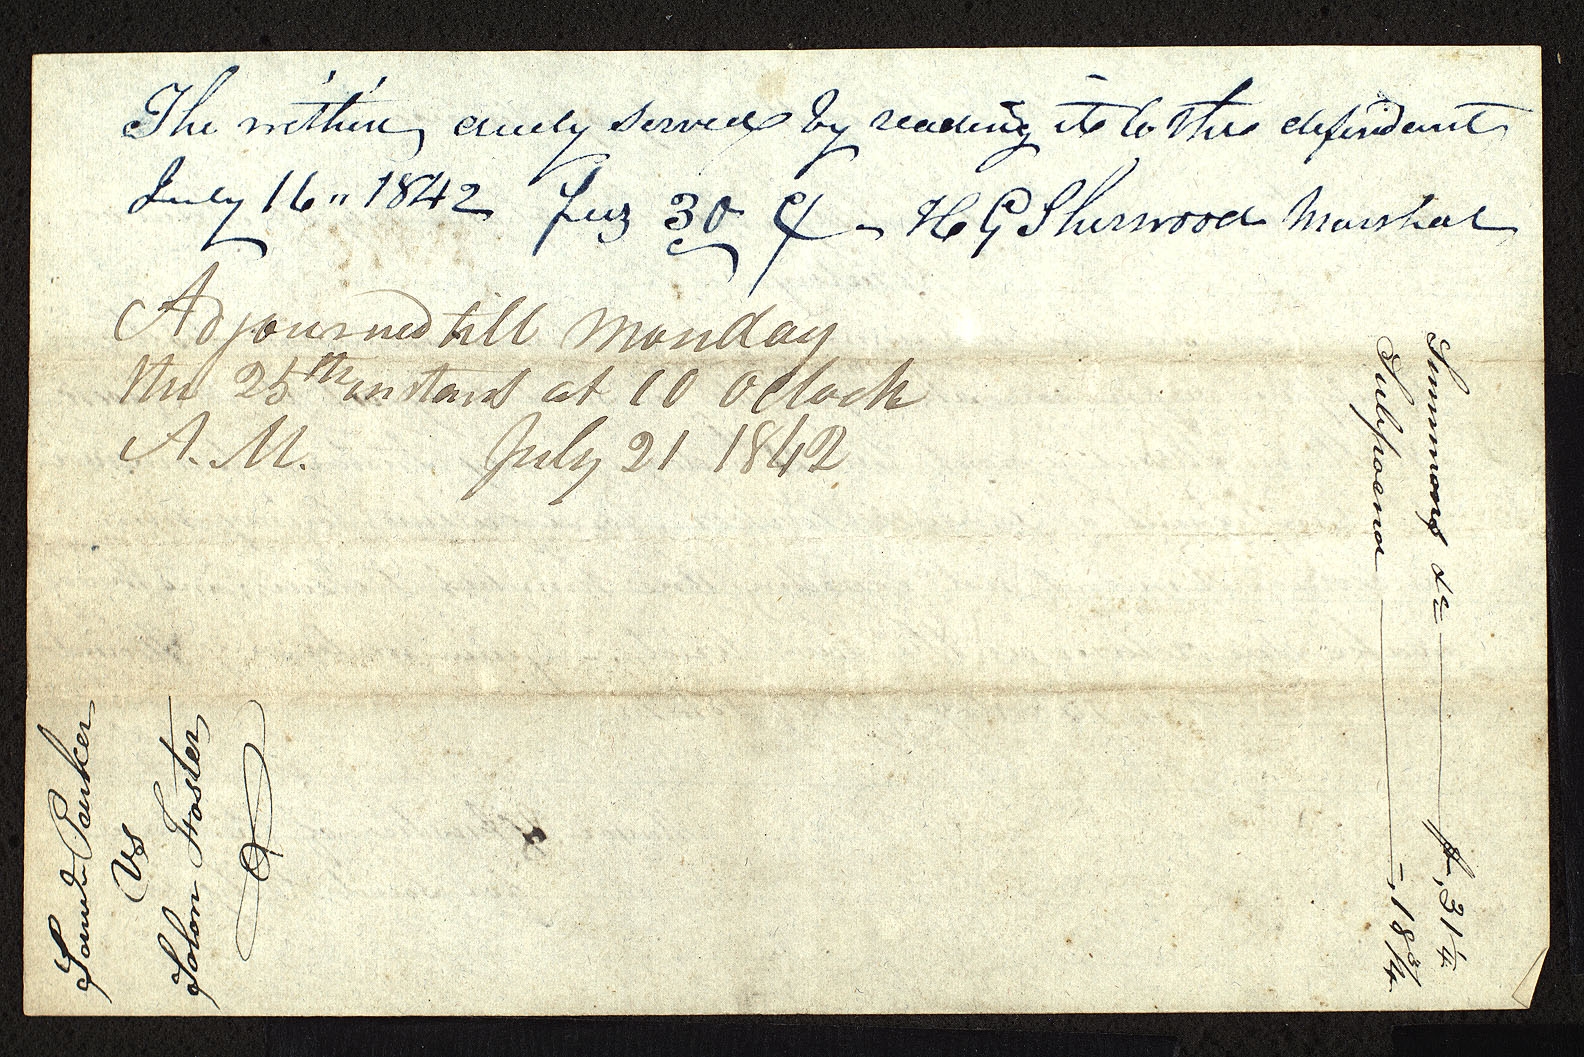 The within duely served by reading it to the defendant
July 16" 1842 Fees 30 H G Sherwood Marshal
Adjourned till Monday
the 25th instant at 10 oclock
A. M. July 21 1842
Summons &c $,31¼
Subpoena -,18¾
Saml Parker
vs
Solon Foster